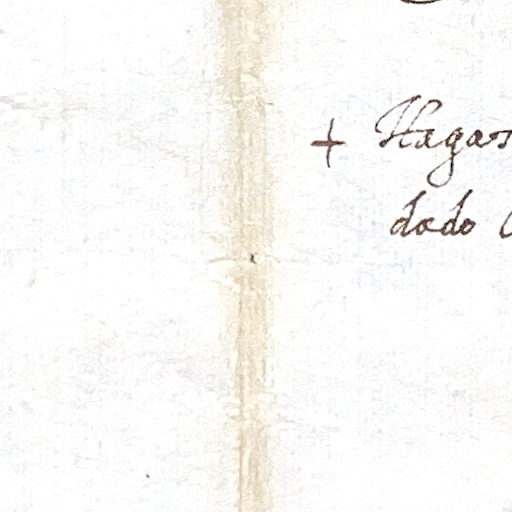 + Hagas
dado